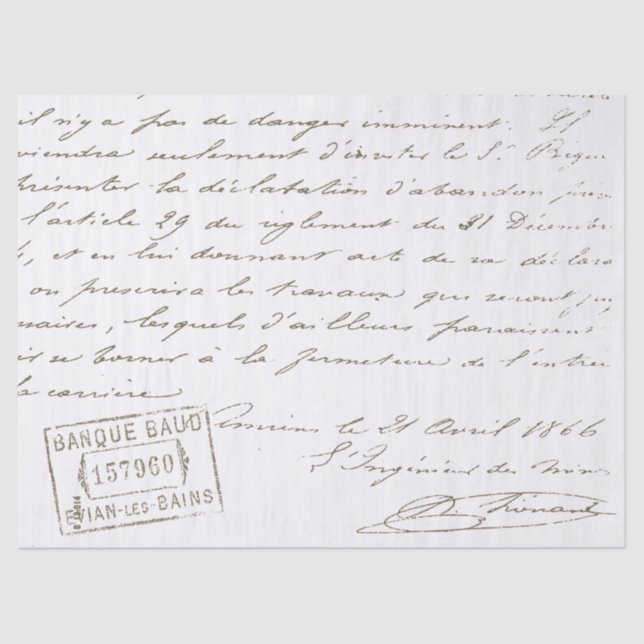 il n'y a pas de danger imminent. Il
viendra seulement d'inviter le Sr.
présenter la déclaration d'abandon
l'article 29 du règlement du 31 Décembr
, et en lui donnant acte de sa déclara
on prescrira les travaux qui seront
saires, lesquels d'ailleurs paraissent
ir se borner à la fermeture de l'entre
la carrière
Amiens le 21 Avril 1866
L'Ingénieur des Mines
BANQUE BAUD
157960
EVIAN-LES-BAINS